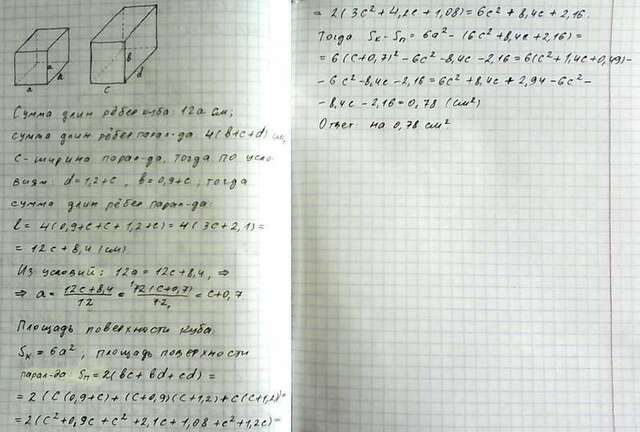 a
a
a
b
c
d
Сумма длин рёбер куба: 12a см;
сумма длин рёбер парал-да 4(b+c+d) см,
c - ширина парал-да, тогда по усло-
виям: d=1,2+c, b=0,9+c, тогда
сумма длин рёбер парал-да:
l = 4(0,9+c+c+1,2+c) = 4(3c+2,1) =
= 12c+8,4 (см)
Из условий: 12a = 12c+8,4, ⇒
⇒ a = 12c+8,4/12 = 12(c+0,7)/12 = c+0,7
Площадь поверхности куба
Sк = 6a², площадь поверхности
парал-да: Sп = 2(bc+bd+cd) =
= 2(c(0,9+c)+(c+0,9)(c+1,2)+c(c+1,2))=
= 2(c²+0,9c+c²+2,1c+1,08+c²+1,2c)=
= 2(3c²+4,2c+1,08) = 6c²+8,4c+2,16.
Тогда Sк-Sп = 6a²-(6c²+8,4c+2,16)=
= 6(c+0,7)²-6c²-8,4c-2,16=6(c²+1,4c+0,49)-
-6c²-8,4c-2,16=6c²+8,4c+2,94-6c²-
-8,4c-2,16=0,78 (см²)
Ответ: на 0,78 см².